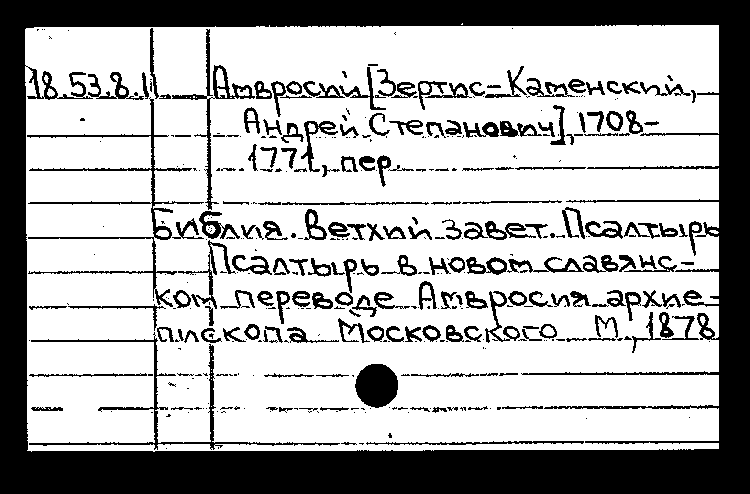 18.53.8.11 Амвросий [Зертис-Каменский,
Андрей Степанович], 1708-
1771, пер.
Библия. Ветхий завет. Псалтырь
Псалтырь в новом славянс-
ком переводе Амвросия архие-
пископа Московского М., 1878